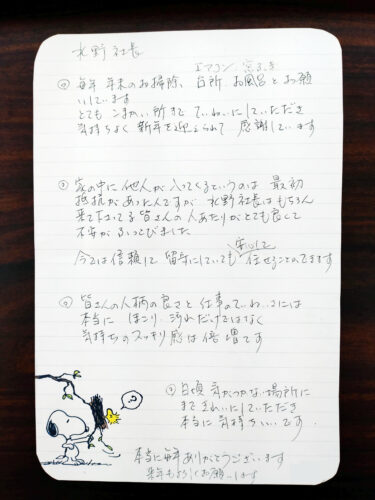 水野社長
エアコン、窓ふき
② 毎年 年末のお掃除、台所 お風呂とお願
いしています
とても こまかい所まで ていねいにしていただき
気持ちよく 新年を迎えられて 感謝しています
③ 家の中に 他人が入ってくるというのは 最初
抵抗があったんですが 水野社長はもちろん
来て下さる皆さんの人あたりがとても良くて
不安がふっとびました
安心して
今では信頼して 留守にしていても 任せることができます
皆さんの人柄の良さと仕事のていねいさには
本当に ほこり、汚れだけではなく
気持ちのスッキリ感は倍増です
日頃 気がつかない場所に
まできれいにしていただき
本当に 気持ちいいです
本当に毎年ありがとうございます
来年もよろしくお願いします
?